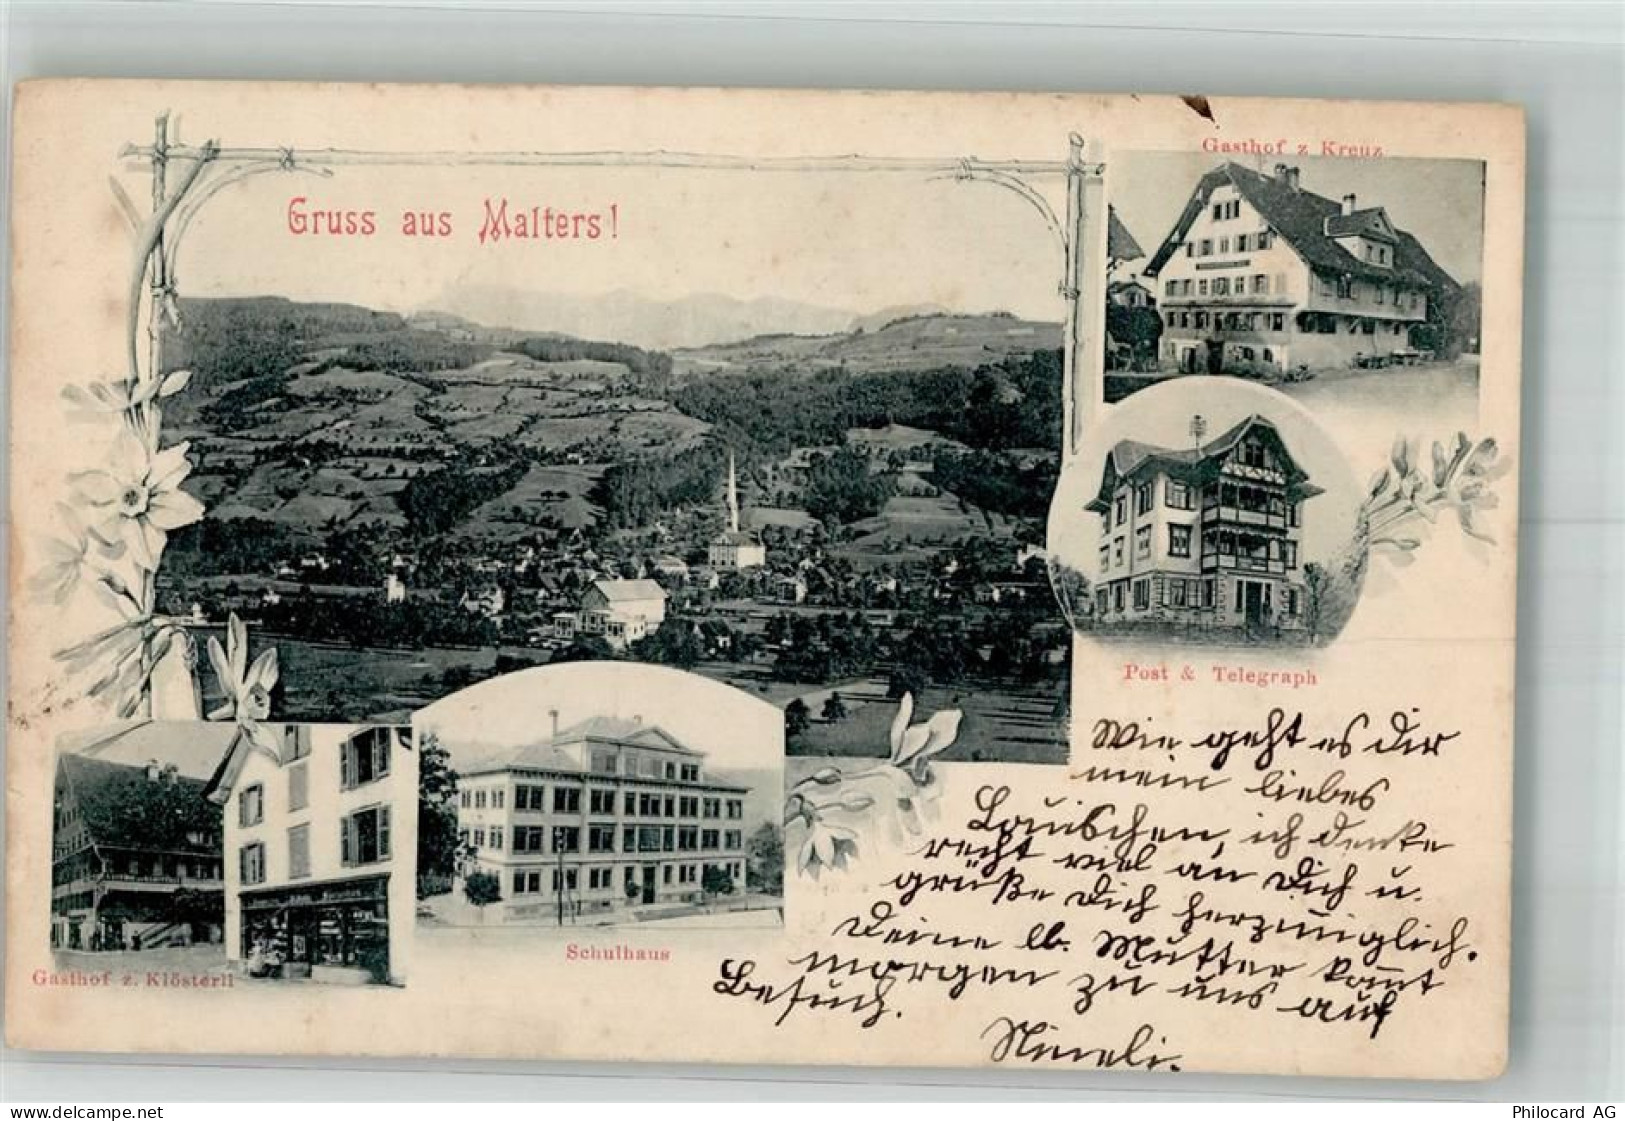 Gruss aus Malters!
Gasthof z Kreuz
Post & Telegraph
Gasthof z. Klösterli
Schulhaus
Wie geht es Dir
mein liebes
Louischen, ich denke
recht viel an Dich u.
grüße Dich herzinniglich.
Deine lb. Mutter kom̅t
morgen zu uns auf
Besuch.
Nineli.
www.delcampe.net
Philocard AG